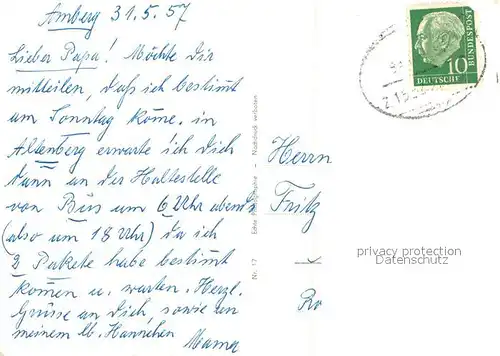 Amberg 31.5.57
Lieber Papa! Möchte Dir
mitteilen, daß ich bestimt
am Sonntag kome, in
Altenberg erwarte ich Dich
dann an der Haltestelle
von Bus um 6 Uhr abends
(also um 18 Uhr) da ich
2 Pakete habe bestimt
komen u. warten. Herzl.
Grüsse an Dich, sowie an
meinem lb. Hannchen
Mama
Nr. 17 Echte Photographie – Nachdruck verboten
Herrn
Fritz
K
Ro
10
DEUTSCHE
BUNDESPOST
privacy protection
Datenschutz